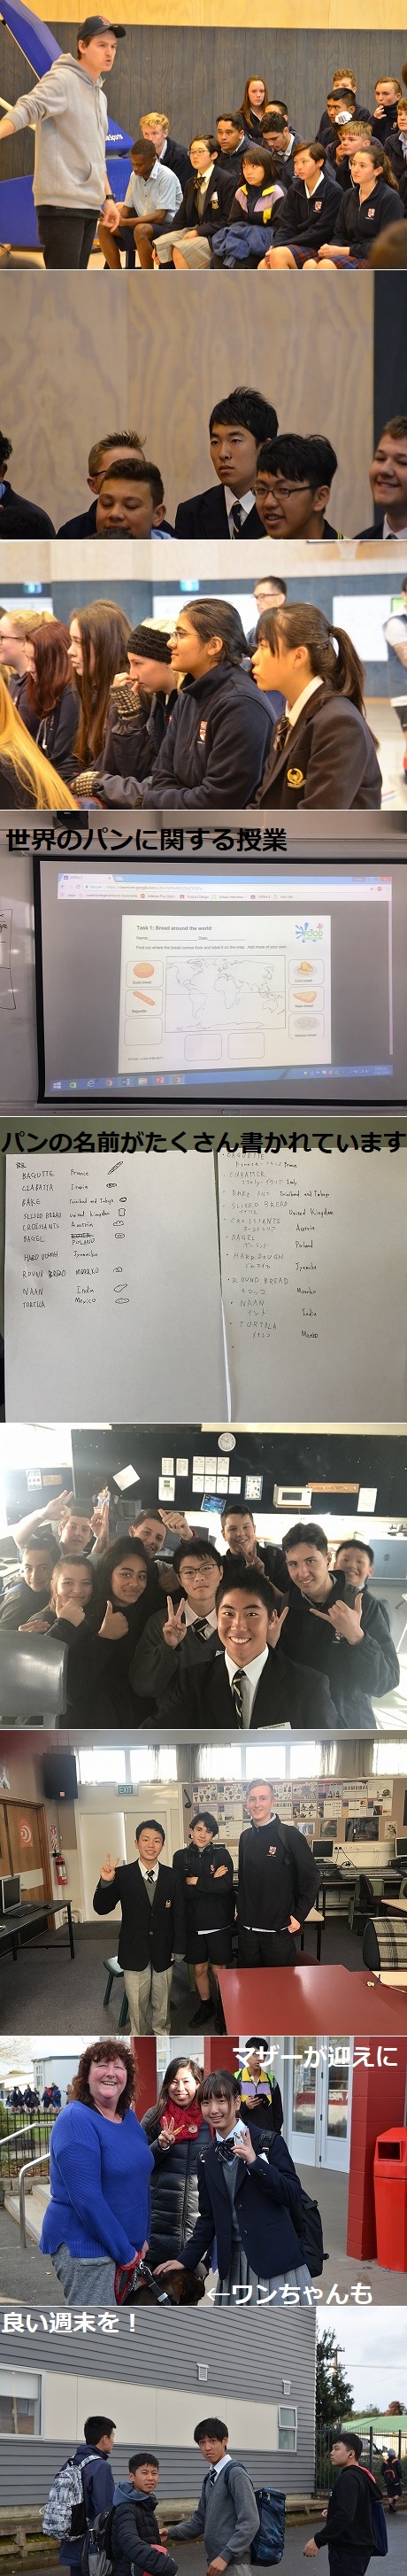 世界のパンに関する授業
Task 1: Bread around the world
Name: Date:
Find out where the bread comes from and label it on the map. Add more of your own.
Baguette
パンの名前がたくさん書かれています
BAGUETTE France
CIABATTA
BAKE Trinidad and Tobago
SLICED BREAD United Kingdom
CROISSANTS Austria
BAGEL POLAND
HARD DOUGH Jyamaika
ROUND BREAD MOROKKO
NAAN India
TORTILLA Mexico
・BAGUETTE
フランス France
・CIABATTA
イタリア Italy
・BAKE AND Trinidad and Tobago
・SLICED BREAD
イギリス United Kingdom
・CROISSANTS
オーストリア Austria
・BAGEL
ポーランド Poland
・HARD DOUGH
ジャマイカ Jyamaika
・ROUND BREAD
モロッコ Morokko
・NAAN
インド India
・TORTILA
メキシコ Mexico
EXIT
マザーが迎えに
←ワンちゃんも
良い週末を！